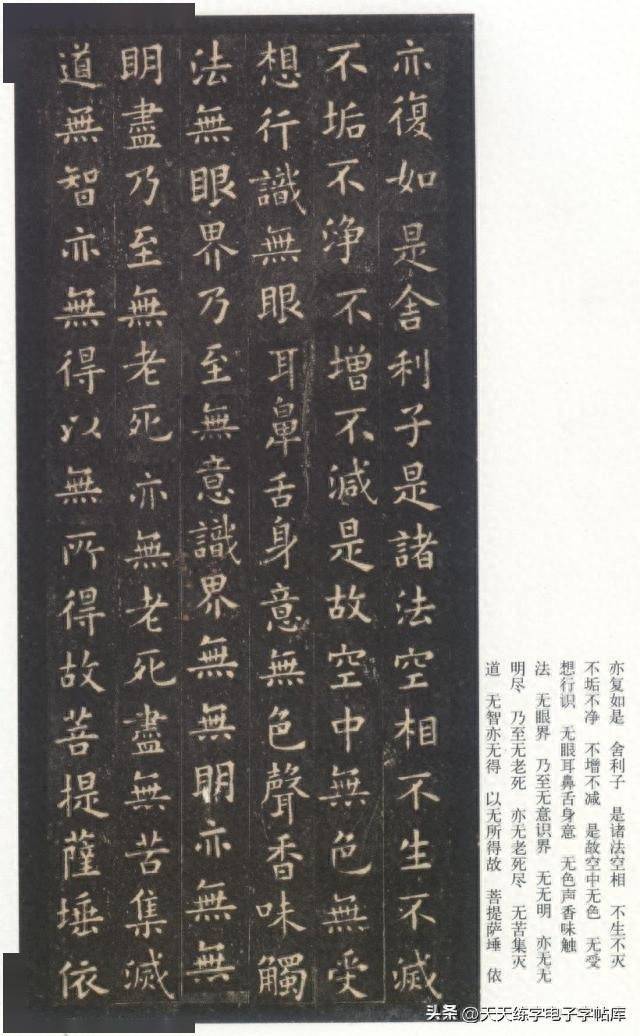 亦復如是舍利子是諸法空相不生不滅
不垢不淨不增不減是故空中無色無受
想行識無眼耳鼻舌身意無色聲香味觸
法無眼界乃至無意識界無無明亦無無
明盡乃至無老死亦無老死盡無苦集滅
道無智亦無得以無所得故菩提薩埵依
亦复如是 舍利子 是诸法空相 不生不灭
不垢不净 不增不减 是故空中无色 无受
想行识 无眼耳鼻舌身意 无色声香味触
法 无眼界 乃至无意识界 无无明 亦无无
明尽 乃至无老死 亦无老死尽 无苦集灭
道 无智亦无得 以无所得故 菩提萨埵 依
头条 @天天练字电子字帖库